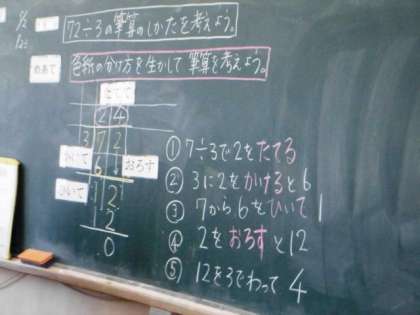 72÷3の筆算のしかたを考えよう。
めあて
色紙の分け方を生かして筆算を考えよう。
たてて
24
3 72
かけて
6
おろす
ひいて
12
12
0
① 7÷3で2をたてる
② 3に2をかけると6
③ 7から6をひいて1
④ 2をおろすと12
⑤ 12を3でわって4